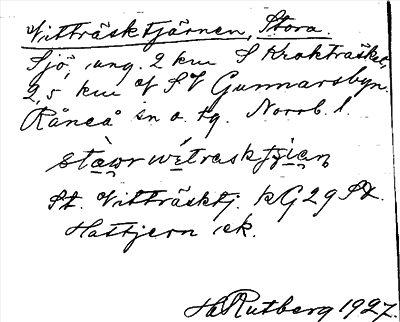 Vitträsktjärnen, Stora.
Sjö, ung. 2 km S Kroktäsket,
2,5 km V SV Gunnarsbyn.
Råneå sn o. tg. Norrb. l.
St. Vitträsktj. kG 29 SV.
Hattjern ek.
H Rutberg 1927.